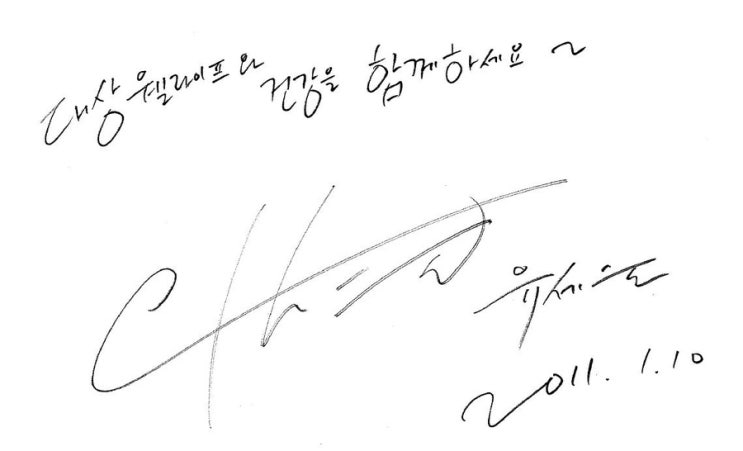 대상웰라이프와 건강을 함께하세요 ~
유세윤
2011. 1. 10